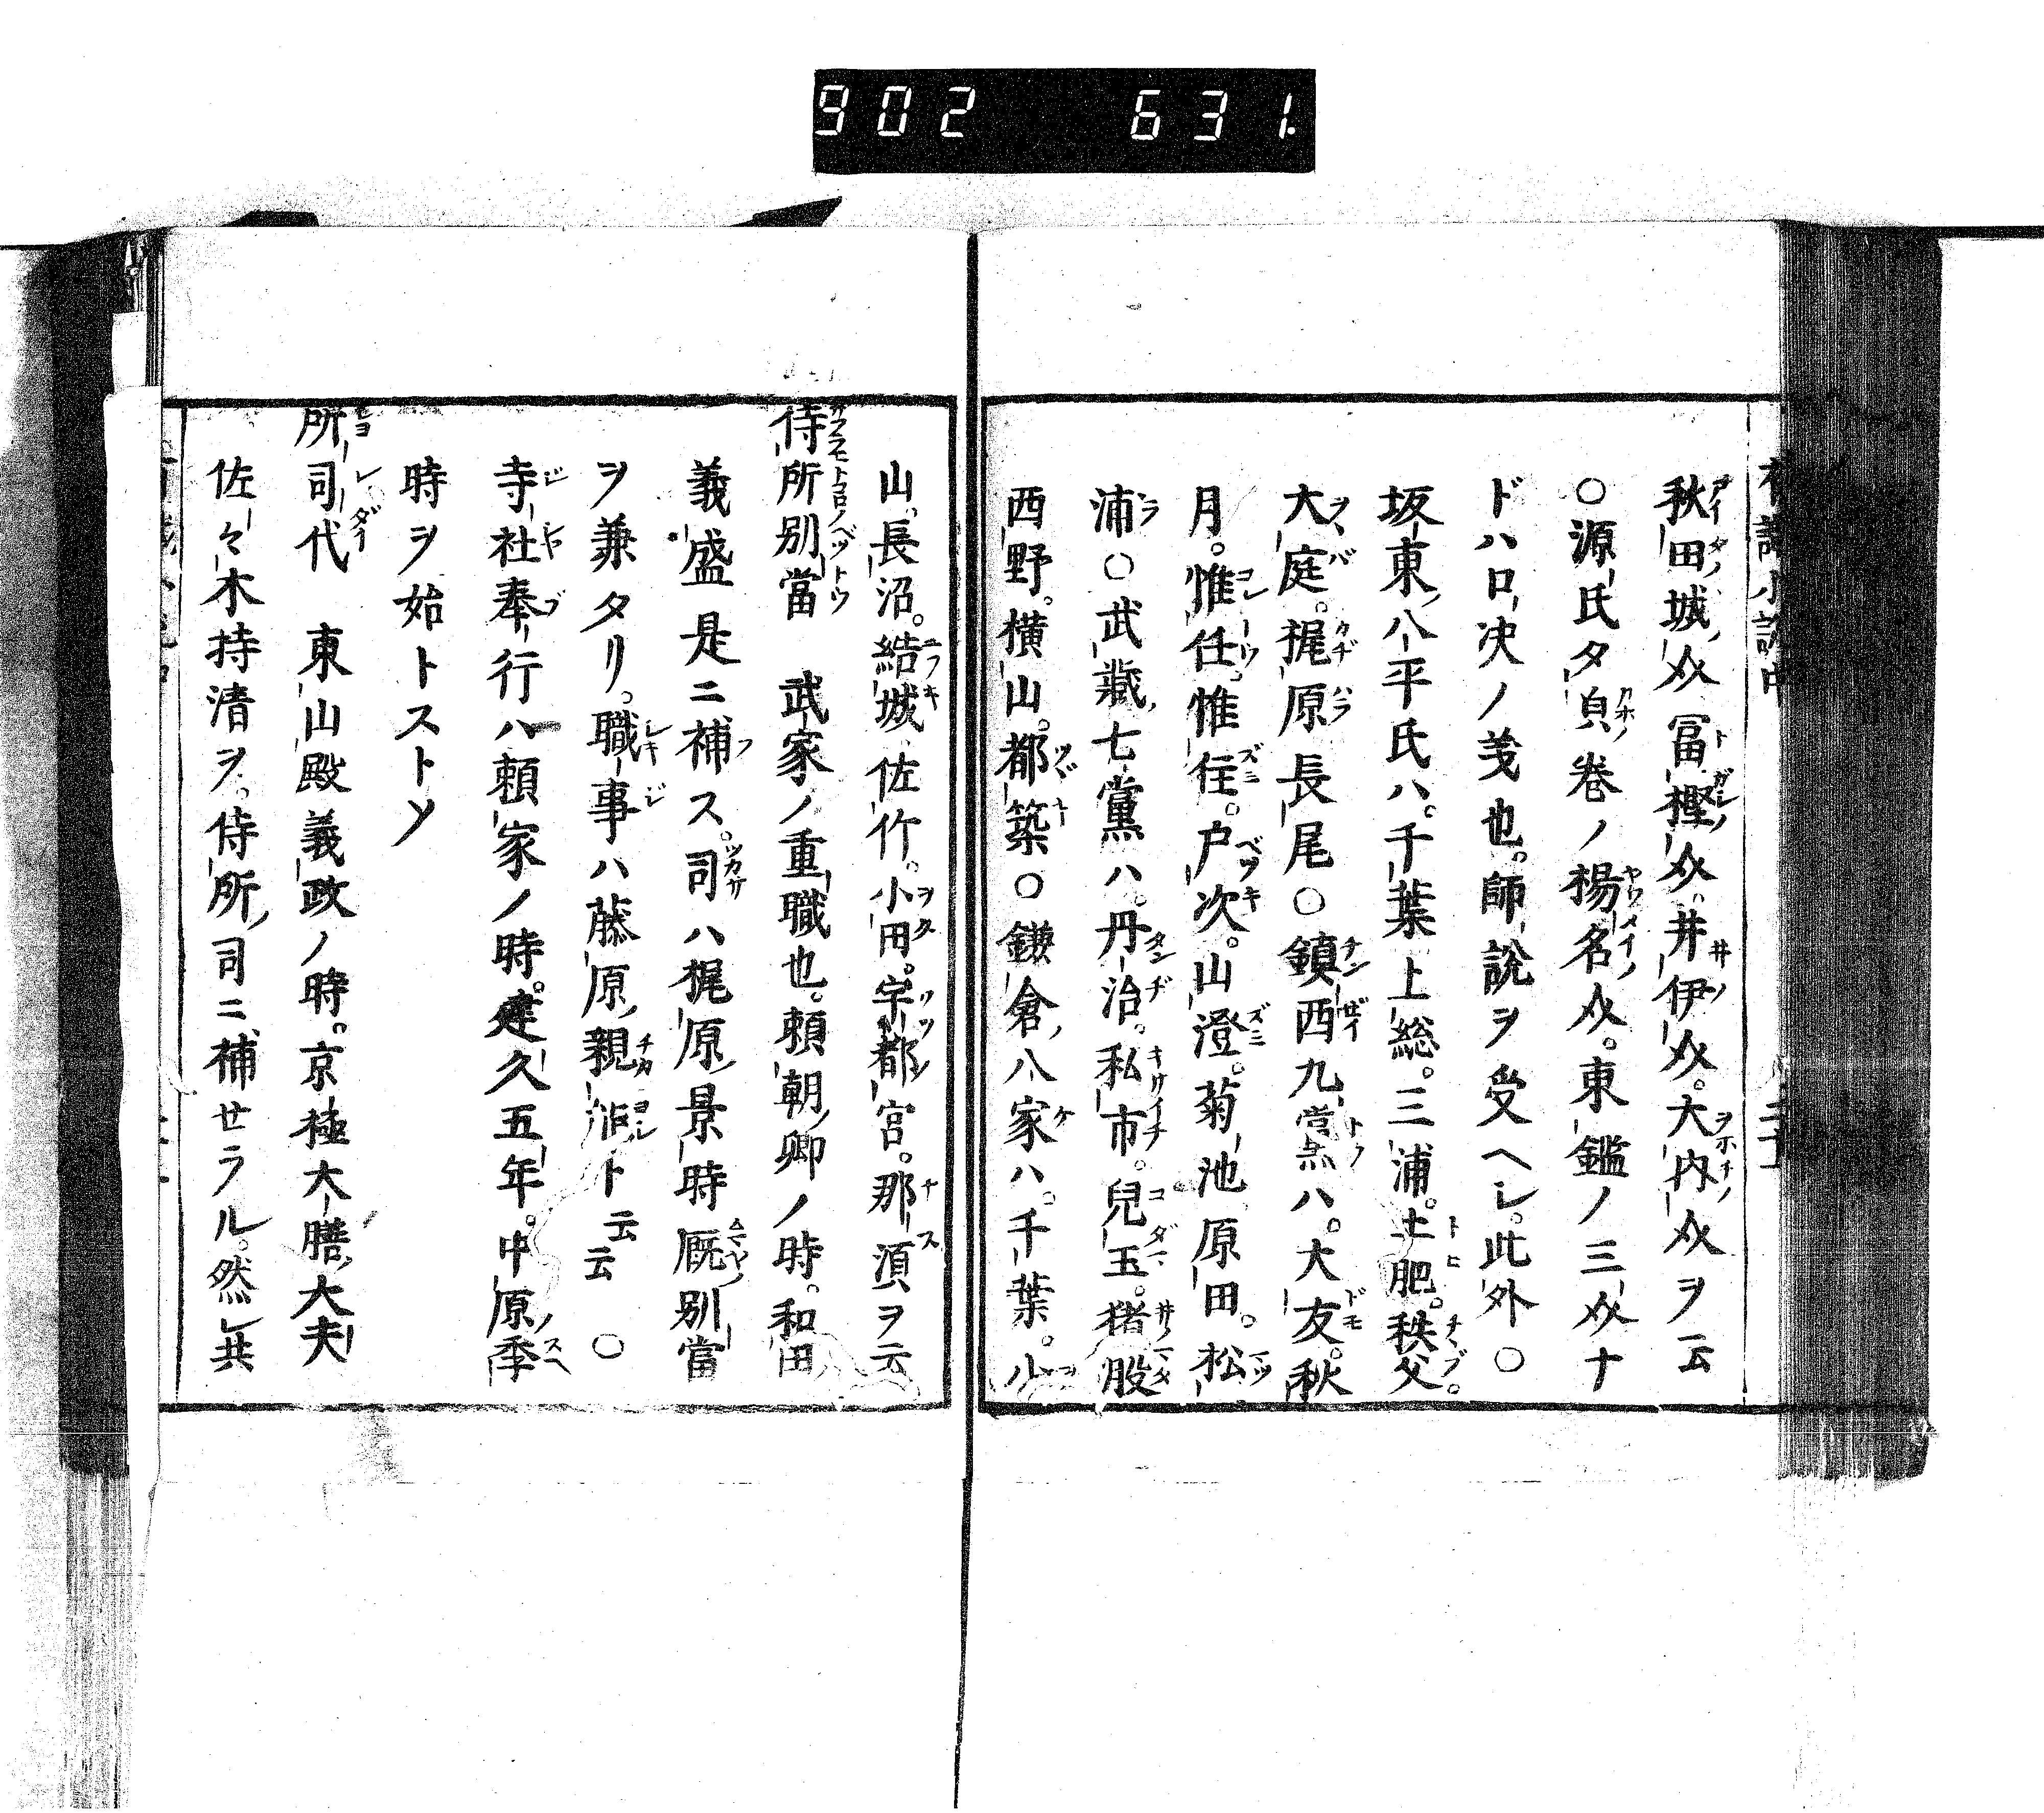 902 631.
秋田城介冨樫介。井伊介。大内介ヲ云
○源氏夕㒵巻ノ揚名介。東鑑ノ三介ナ
ドハ口决ノ義也。師説ヲ受ヘシ。此外○
坂東八平氏ハ。千葉上総。三浦。土肥。秩父。
大庭。梶原長尾○鎮西九黨ハ。大友。秋
月。惟任。惟住。戸次。山澄。菊池原田。松
浦○武藏七黨ハ。丹治。私市。兒玉。猪股
西野。横山。都築○鎌倉八家ハ。千葉。小
山。長沼。結城佐竹。小田。宇都宮。那湏ヲ云
侍所別當 武家ノ重職也。頼朝卿ノ時。和田
義盛是ニ補ス。司ハ梶原景時厩別當
ヲ兼タリ。職事ハ藤原親 ト云云 ○
寺社奉行ハ頼家ノ時。建久五年。中原季
時ヲ始トストソ
所司代 東山殿義政ノ時。京極大膳大夫
佐々木持清ヲ。侍所司ニ補セラル。然レ共